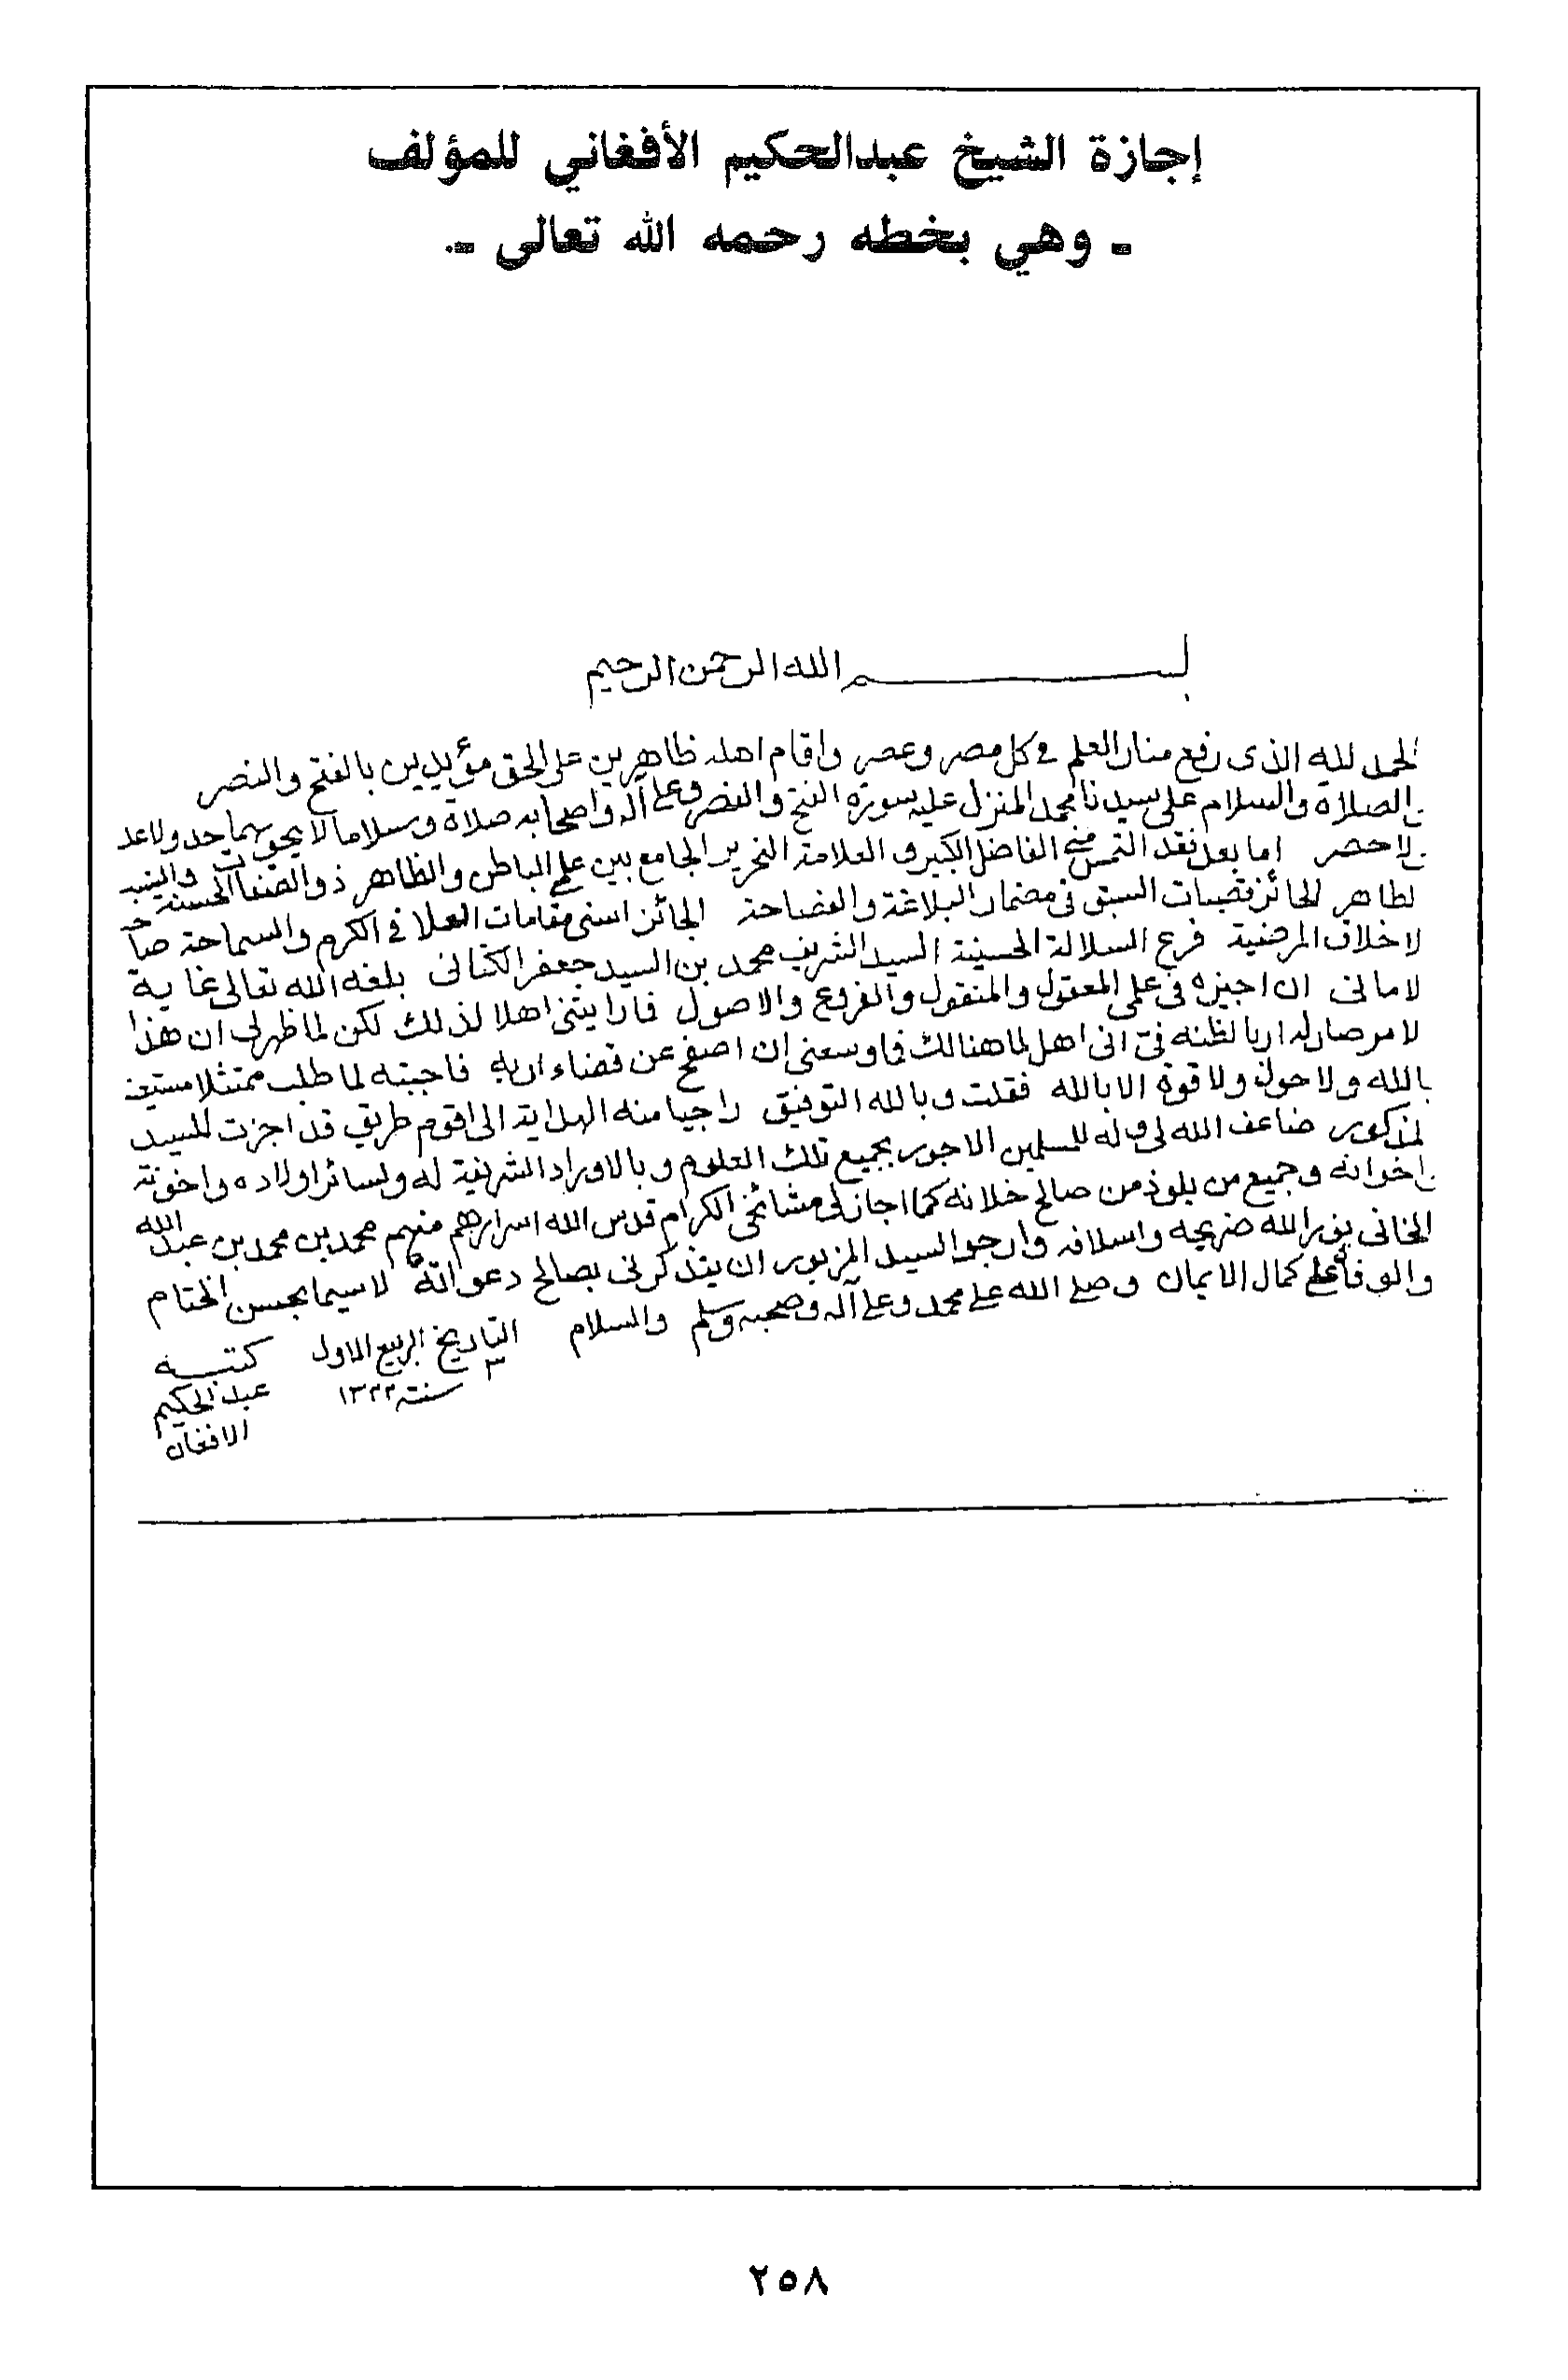 إجازة الشيخ عبدالحكيم الأفغاني للمؤلف
- وهي بخطه رحمه الله تعالى -.
بسم الله الرحمن الرحيم
الحمد لله الذى رفع منار العلم فى كل مصر وعصر واقام اهله ظاهرين على الحق مؤيدين بالفتح والنصر
الصلاة والسلام على سيدنا محمد المنزل عليه سورة الفتح والنصر وعلى آله واصحابه صلاة وسلاما لا يحق بهما حد ولا عد
لا حصر اما بعد فقد التمس منى الفاضل الكبير و العلامة النحرير الجامع بين علمى الباطن والظاهر ذو الصفات الحسنة والنسب
لطاهر الحائز قصبات السبق فى مضمار البلاغة والفصاحة الحائز اسنى مقامات العلا فى الكرم والسماحة صاحـ
لاخلاق المرضية فرع السلالة الحسينية السيد الشريف محمد بن السيد جعفر الكتانى بلغه الله تعالى غاية
لامانى ان اجيزه فى علمى المعقول والمنقول والفروع والاصول فارايتنى اهلا لذلك لكن لما ظهر لى ان هذا
لامر صار له اربا لظنه فيّ انى اهل لما هنالك فما وسعنى ان اصفح عن قضاء اربه فاجبته لما طلب ممتثلا مستعـ
بالله ولا حول ولا قوة الا بالله فقلت وبالله التوفيق راجيا منه الهداية الى اقوم طريق قد اجزت للسيد
لمذكور ضاعف الله لى وله للمسلمين الاجور بجميع تلك العلوم وبالاوراد الشريفية له ولسائر اولاده واخوته
اخوانه وجميع من يلوذ من صالح خلانه كما اجاز لى مشائخى الكرام قدس الله اسرارهم منهم محمد بن محمد بن عبد الله
الخانى نور الله ضريحه واسلافه وارجو السيد المزبور ان يتذكرنى بصالح دعواته لاسيما بحسن الختام
والوفاة على كمال الايمان وصلى الله على محمد وعلى آله وصحبه وسلم والسلام التاريخ الربيع الاول كتبه
٣ سنة ١٣٢٢ عبد الحكيم
الافغان
٢٥٨